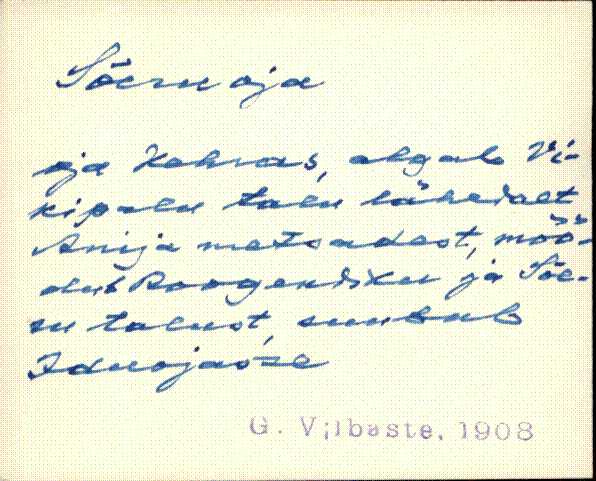 Sõeru oja
oja Kehras, algab Vi-
kipalu talu lähedalt
Anija metsadest, möö-
dub Roogendiku ja Sõe-
ru talust, suubub
G. Vilbaste, 1908